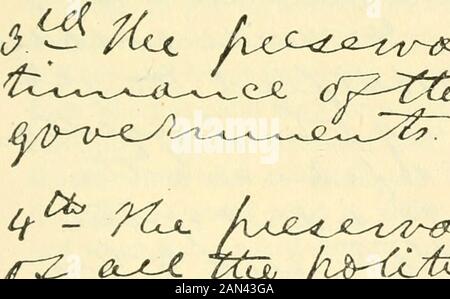 3rd The preserva
tinuance of the
governments.
4th The preserva
of all the polit
alamy
AN43GA